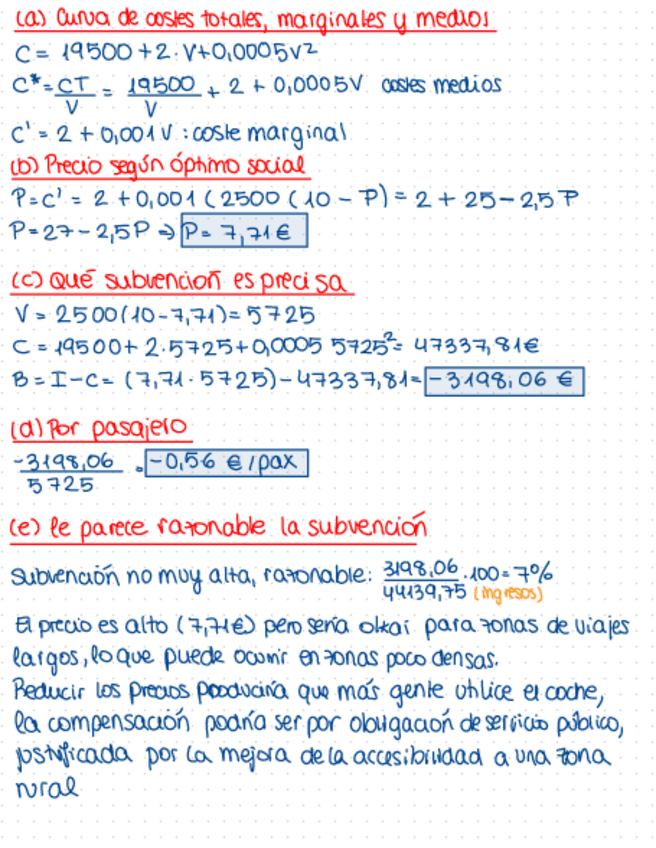 (a) Curva de costes totales, marginales y medios
C = 19500 + 2·V + 0,0005V²
C* = CT/V = 19500/V + 2 + 0,0005V costes medios
C' = 2 + 0,001V : coste marginal
(b) Precio según óptimo social
P = C' = 2 + 0,001 (2500 (10 - P) = 2 + 25 - 2,5P
P = 27 - 2,5P ⇒ P = 7,71€
(c) Qué subvención es precisa
V = 2500(10-7,71) = 5725
C = 19500 + 2·5725 + 0,0005 5725² = 47337,81€
B = I - C = (7,71·5725) - 47337,81 = -3198,06 €
(d) Por pasajero
-3198,06/5725 = -0,56 €/pax
(e) le parece razonable la subvención
Subvención no muy alta, razonable: 3198,06/44139,75 (ingresos) ·100 = 7%
El precio es alto (7,71€) pero sería okai para zonas de viajes
largos, lo que puede ocurrir en zonas poco densas.
Reducir los precios produciría que más gente utilice el coche,
la compensación podría ser por obligación de servicio público,
justificada por la mejora de la accesibilidad a una zona
rural